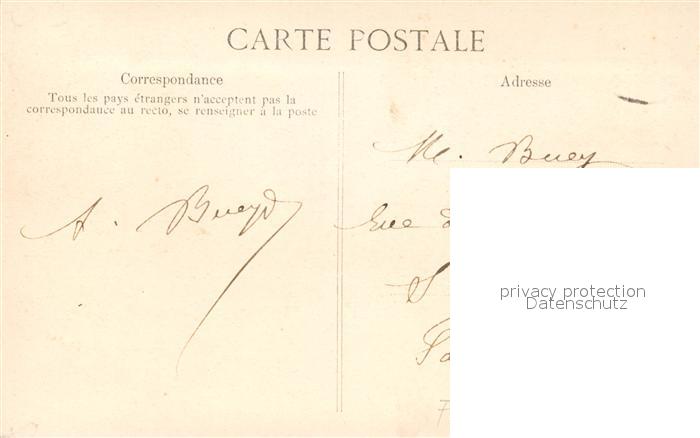 CARTE POSTALE
Correspondance
Tous les pays étrangers n'acceptent pas la
correspondance au recto, se renseigner à la poste
Adresse
M.
A.
privacy protection
Datenschutz